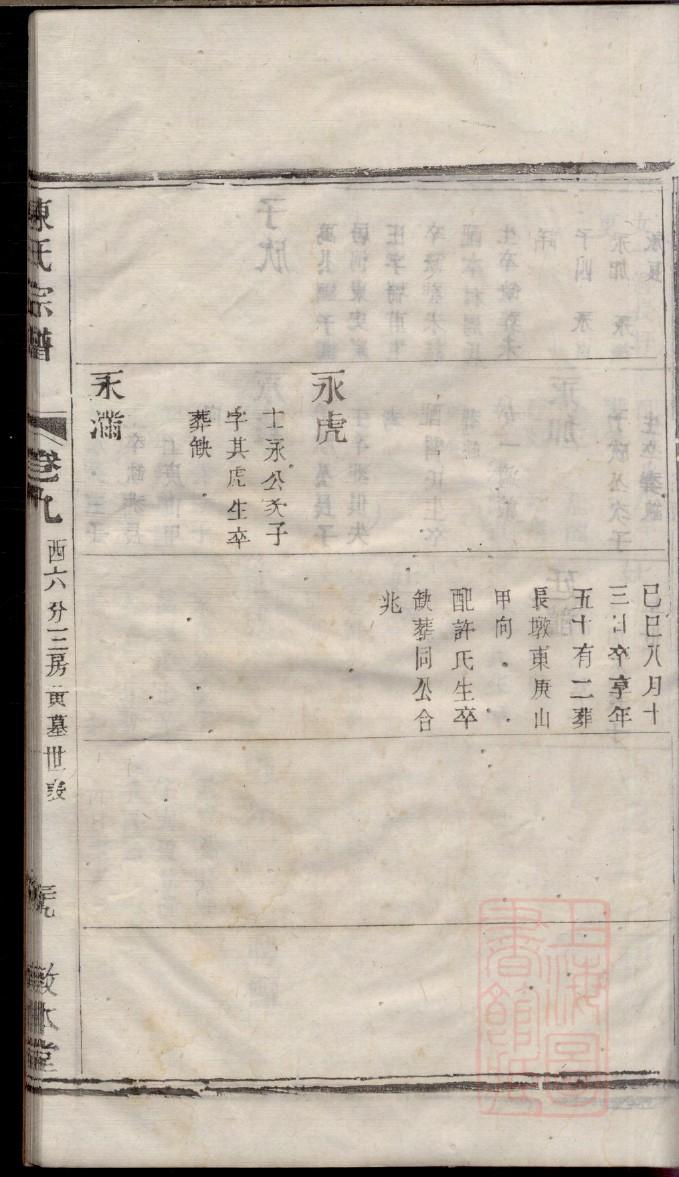 永虎
士永公次子
字其虎生卒
葬缺
永滿
己巳八月十
三日卒享年
五十有二葬
長墩東庚山
甲向
配許氏生卒
缺葬同公合
兆
陳氏宗譜
卷九
西六分三房黃墓世表
敬本堂
上海圖書館藏